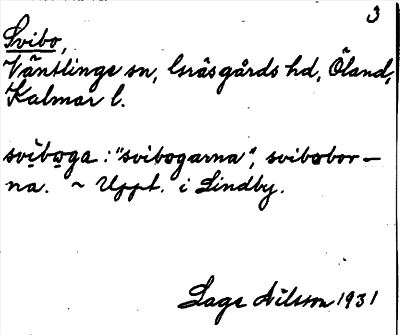 3
Svibo,
Väntlinge sn, Gräsgårds hd, Öland,
Kalmar l.
svíboga: "svibogarna", svibobor-
na. ~ Uppt. i Lindby.
Lage Nilsson 1931